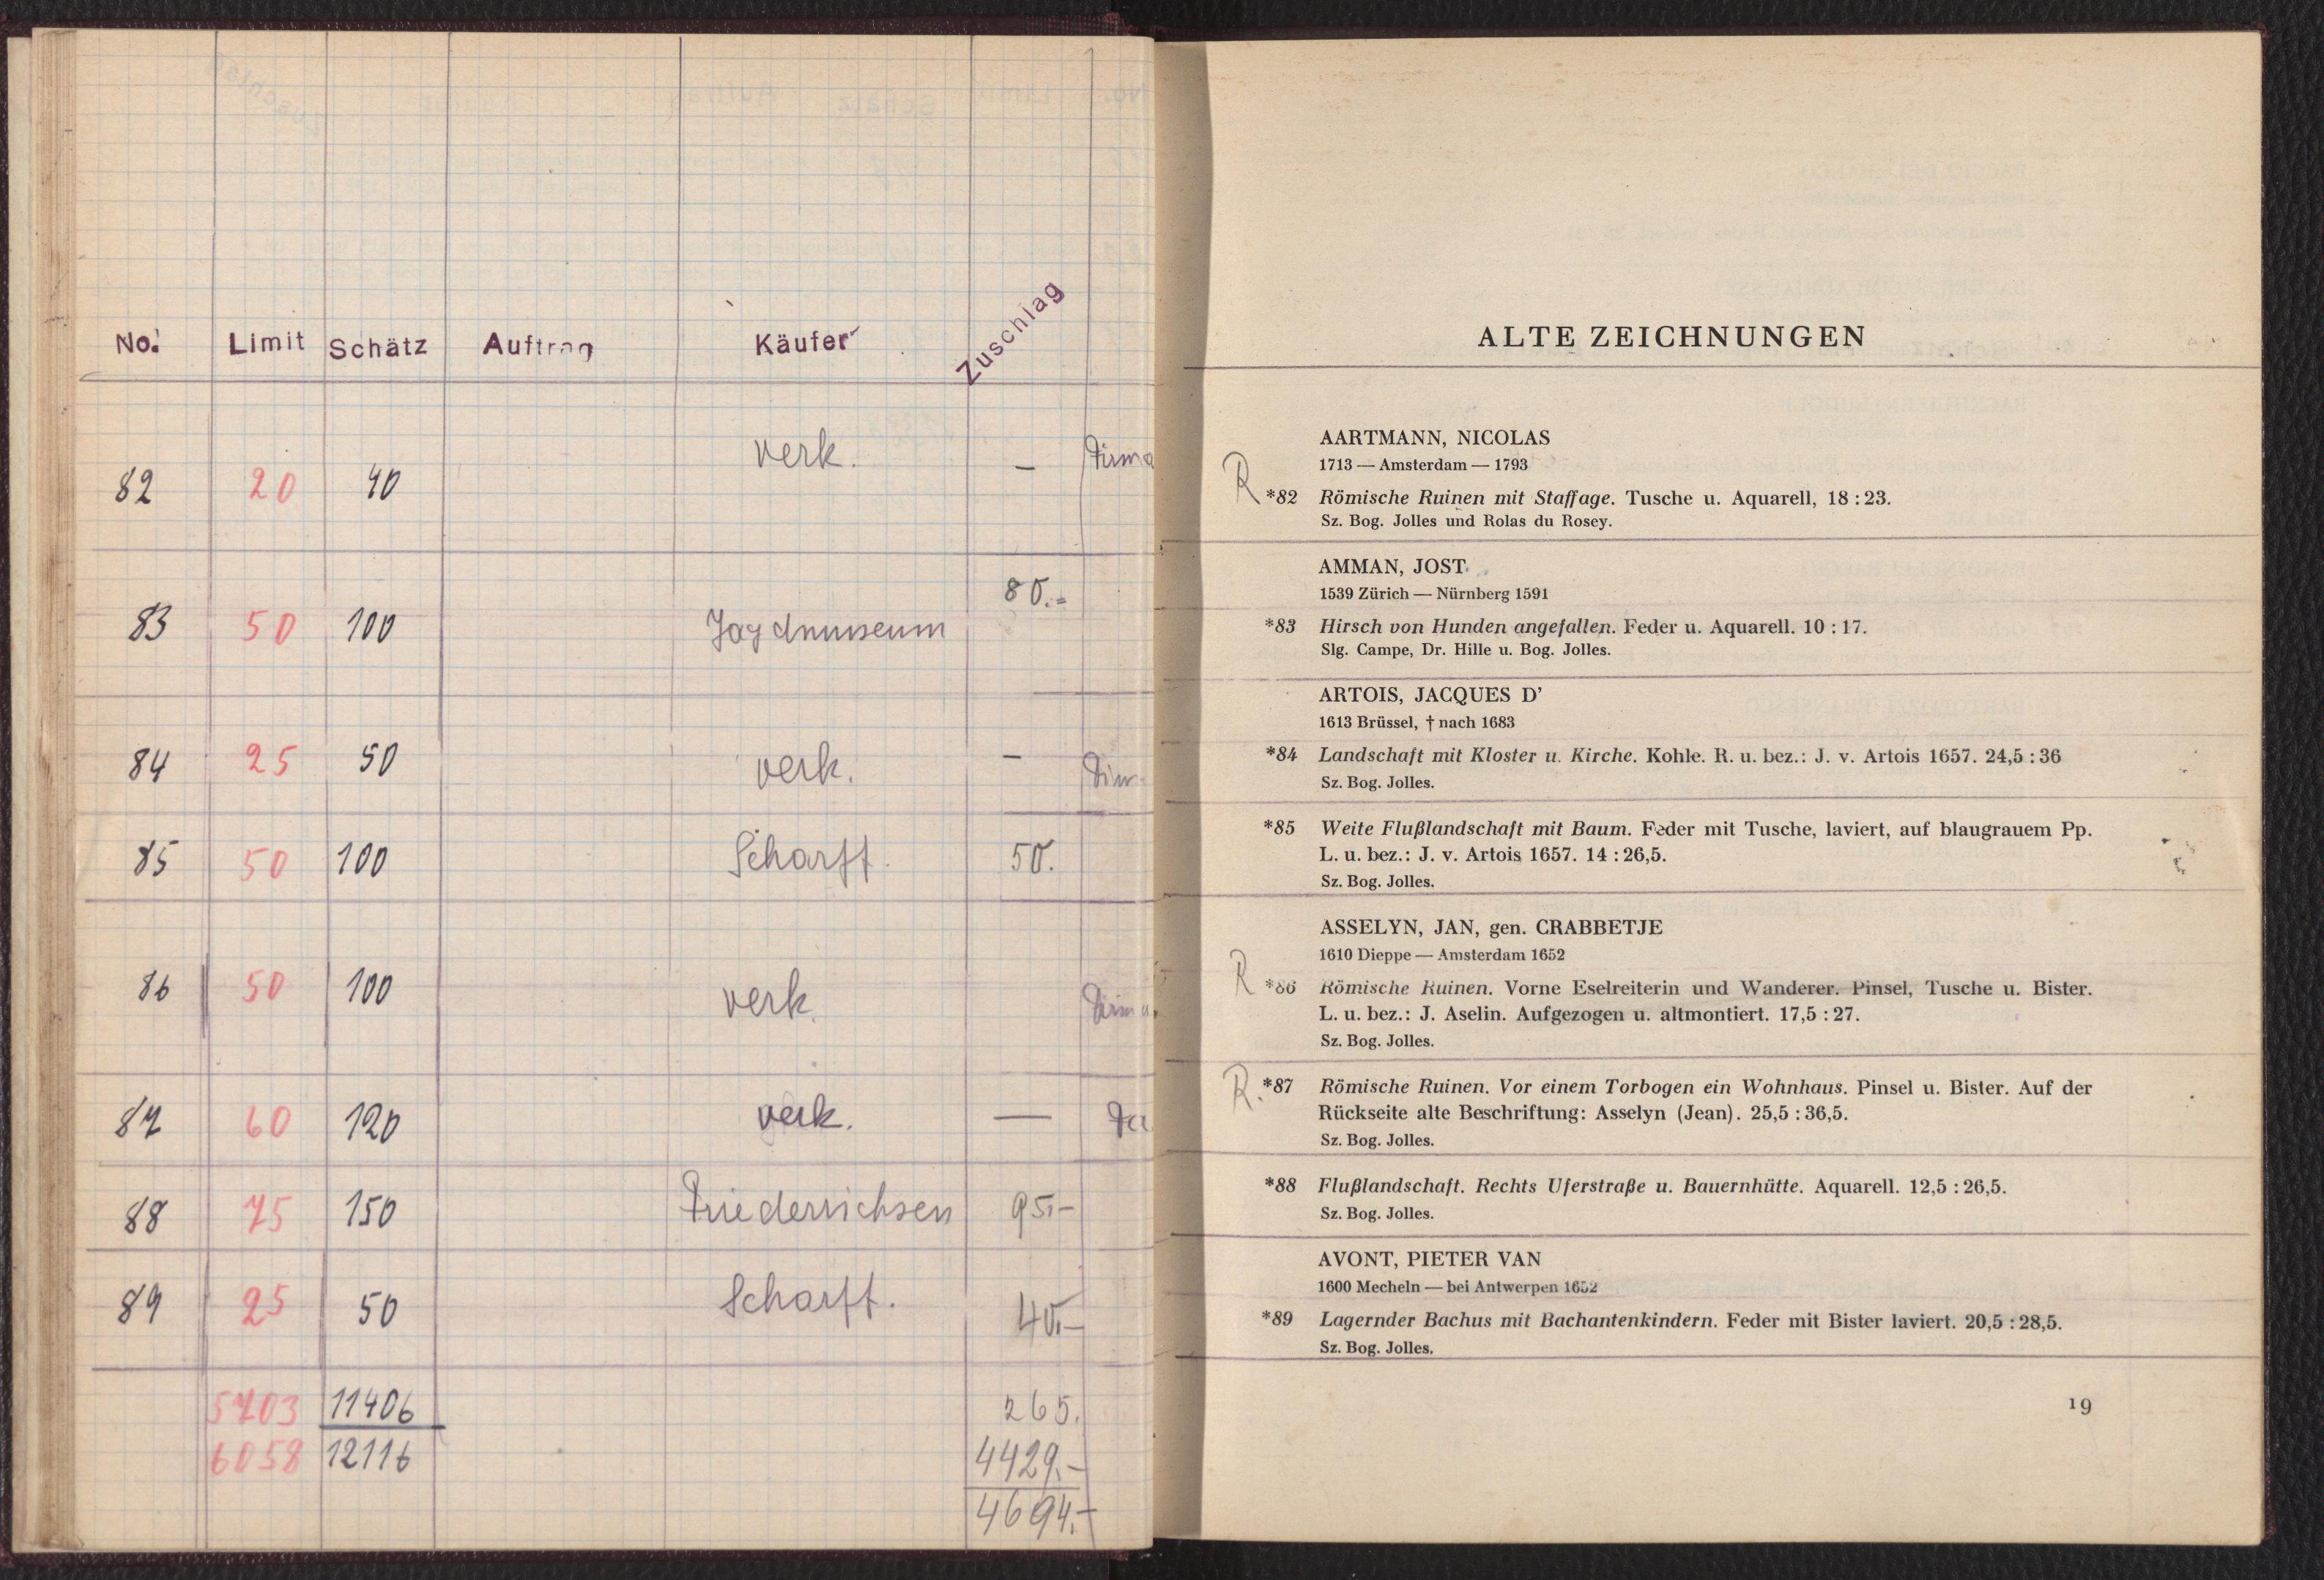 No. Limit Schätz Auftrag Käufer Zuschlag
verk. – Firma
82 20 40
80.-
83 50 100 Jagdmuseum
84 25 50 verk. –
85 50 100 Scharff. 50.
86 50 100 verk. Firma
87 60 120 verk. — Fa
88 75 150 Friederichsen 95.-
89 25 50 Scharff. 40.-
5703 11406 265.
6058 12116 4429.-
4694.-
ALTE ZEICHNUNGEN
AARTMANN, NICOLAS
1713 — Amsterdam — 1793
R *82 Römische Ruinen mit Staffage. Tusche u. Aquarell, 18 : 23.
Sz. Bog. Jolles und Rolas du Rosey.
AMMAN, JOST
1539 Zürich — Nürnberg 1591
*83 Hirsch von Hunden angefallen. Feder u. Aquarell. 10 : 17.
Slg. Campe, Dr. Hille u. Bog. Jolles.
ARTOIS, JACQUES D'
1613 Brüssel, † nach 1683
*84 Landschaft mit Kloster u. Kirche. Kohle. R. u. bez.: J. v. Artois 1657. 24,5 : 36
Sz. Bog. Jolles.
*85 Weite Flußlandschaft mit Baum. Feder mit Tusche, laviert, auf blaugrauem Pp.
L. u. bez.: J. v. Artois 1657. 14 : 26,5.
Sz. Bog. Jolles.
ASSELYN, JAN, gen. CRABBETJE
1610 Dieppe — Amsterdam 1652
R *86 Römische Ruinen. Vorne Eselreiterin und Wanderer. Pinsel, Tusche u. Bister.
L. u. bez.: J. Aselin. Aufgezogen u. altmontiert. 17,5 : 27.
Sz. Bog. Jolles.
R. *87 Römische Ruinen. Vor einem Torbogen ein Wohnhaus. Pinsel u. Bister. Auf der
Rückseite alte Beschriftung: Asselyn (Jean). 25,5 : 36,5.
Sz. Bog. Jolles.
*88 Flußlandschaft. Rechts Uferstraße u. Bauernhütte. Aquarell. 12,5 : 26,5.
Sz. Bog. Jolles.
AVONT, PIETER VAN
1600 Mecheln — bei Antwerpen 1652
*89 Lagernder Bachus mit Bachantenkindern. Feder mit Bister laviert. 20,5 : 28,5.
Sz. Bog. Jolles.
19